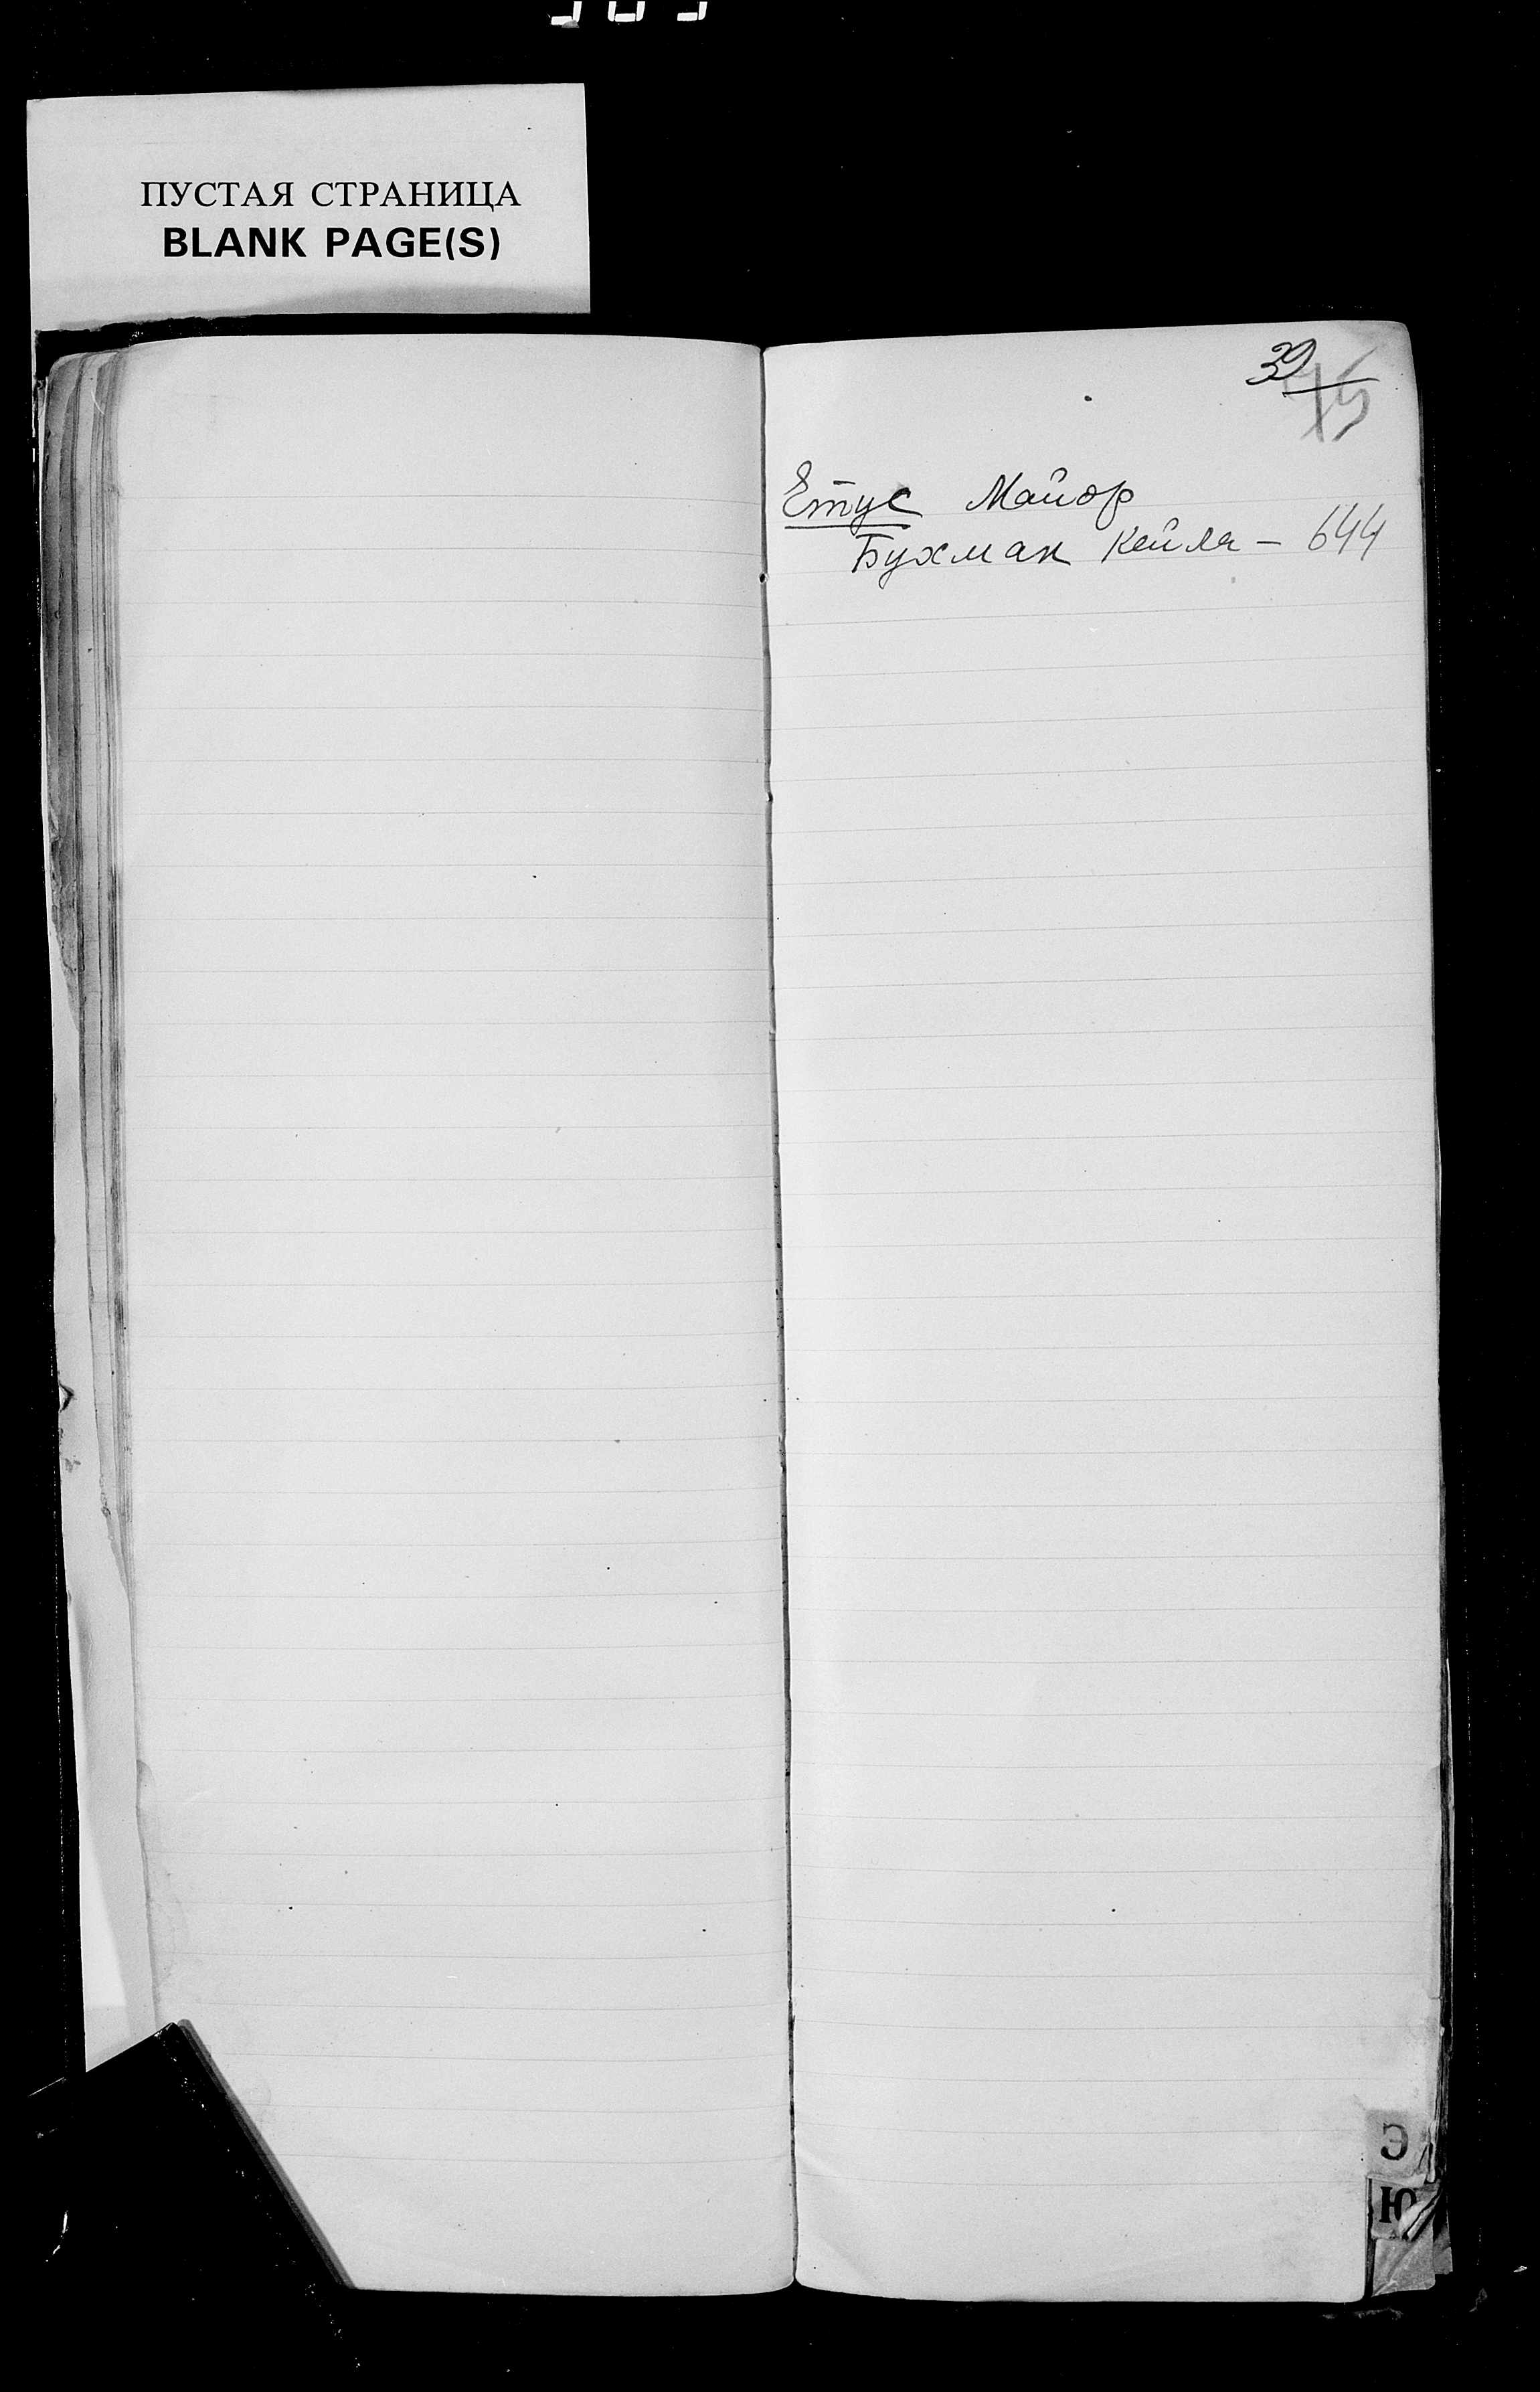 ПУСТАЯ СТРАНИЦА
BLANK PAGE(S)
39
45
Етус Майор
Бухман Кейля - 644
Э
Ю